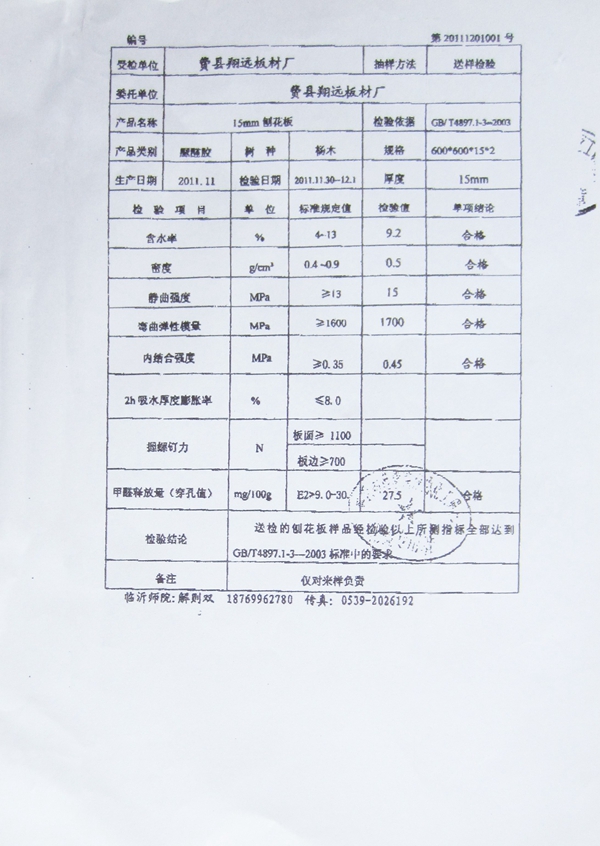 编号 第 20111201001 号
受检单位 费县翔远板材厂 抽样方法 送样检验
委托单位 费县翔远板材厂
产品名称 15mm 刨花板 检验依据 GB/T4897.1-3--2003
产品类别 脲醛胶 树 种 杨木 规格 600*600*15*2
生产日期 2011.11 检验日期 2011.11.30--12.1 厚度 15mm
检 验 项 目 单 位 标准规定值 检验值 单项结论
含水率 % 4-13 9.2 合格
密度 g/cm³ 0.4~0.9 0.5 合格
静曲强度 MPa ≥13 15 合格
弯曲弹性模量 MPa ≥1600 1700 合格
内结合强度 MPa ≥0.35 0.45 合格
2h 吸水厚度膨胀率 % ≤8.0
握螺钉力 N 板面≥ 1100
板边≥700
甲醛释放量（穿孔值） mg/100g E2>9.0-30. 27.5 合格
检验结论 送检的刨花板样品经检验以上所测指标全部达到
GB/T4897.1-3—2003 标准中的要求
备注 仅对来样负责
临沂师院:解则双 18769962780 传真: 0539-2026192